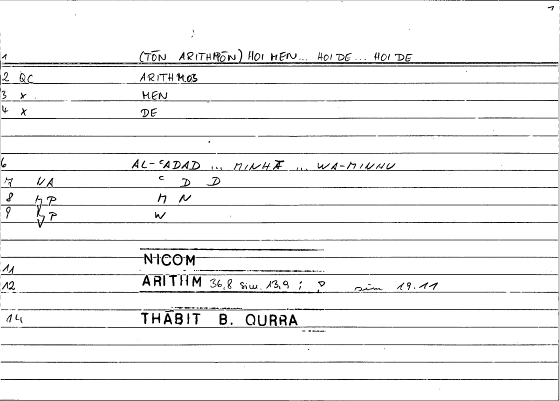 1 (TŌN ARITHMŌN) HOI MEN... HOI DE... HOI DE
2 QC ARITHMOS
3 x MEN
4 x DE
6 AL-ʿADAD ... MINHĀ ... WA-MINHU
7 NA ʿ D D
8 P M N
9 P W
NICOM
11
12 ARITHM 36,8 sim. 13,9 ; sim 19.11
14 THĀBIT B. QURRA